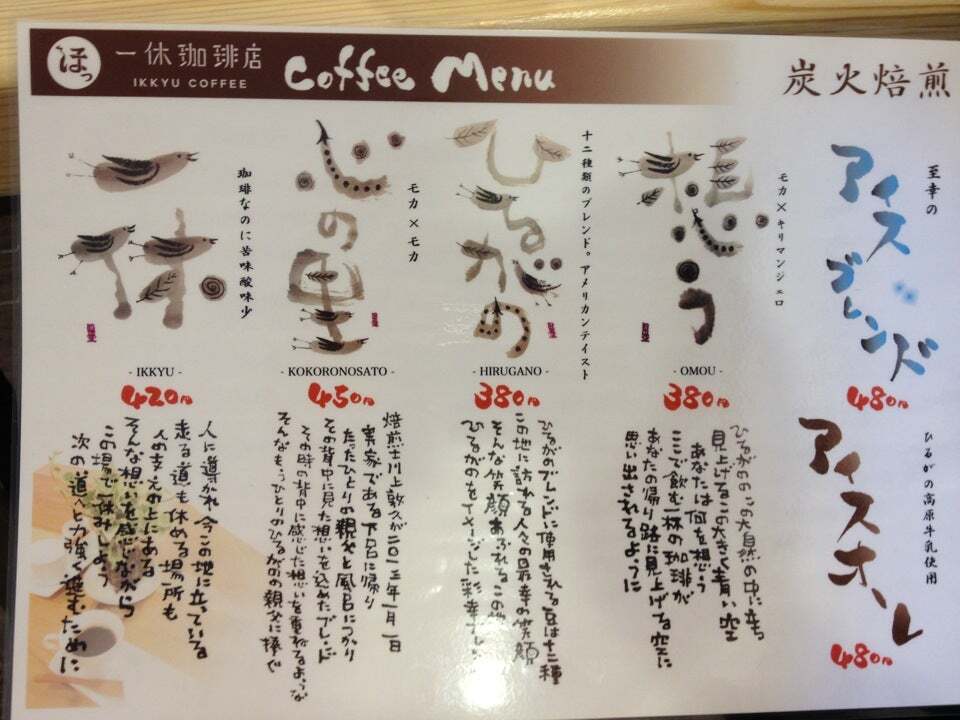 ほっ
一休珈琲店
IKKYU COFFEE
Coffee Menu
炭火焙煎
至幸の
アイスブレンド
480円
ひるがの高原牛乳使用
アイスオーレ
480円
モカ×キリマンジェロ
想う
- OMOU -
380円
ひるがののこの大自然の中に立ち
見上げるこの大きく青い空
あなたは何を想う
ここで飲む一杯の珈琲が
あなたの帰り路に見上げる空に
思い出されるように
十二種類のブレンド。アメリカンテイスト
ひるがの
- HIRUGANO -
380円
ひるがのブレンドに使用される豆は十二種
この地に訪れる人々の最幸の笑顔
そんな笑顔あふれるこの地
ひるがのをイメージした彩幸ブレンド
モカ×モカ
心の里
- KOKORONOSATO -
450円
焙煎士川上敦久が二〇一三年一月一日
実家である下呂に帰り
たったひとりの親父と風呂につかり
その背中に見た想いを込めたブレンド
その時の背中に感じた想いを重ねるような
そんなもうひとりのひるがのの親父に捧ぐ
珈琲なのに苦味酸味少
一休
- IKKYU -
420円
人に導かれ今この地に立っている
走る道も休める場所も
人の支えの上にある
そんな想いを感じながら
この場で一休みしよう
次の道へと力強く進むために